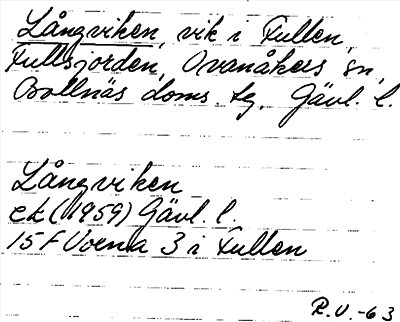 Långviken, vik i Fullen,
Fullsjorden, Ovanåkers sn,
Bollnäs doms. tg, Gävl. l.
Långviken
ek (1959) Gävl. l.
15F Voxna 3 i Fullen
R.V.-63